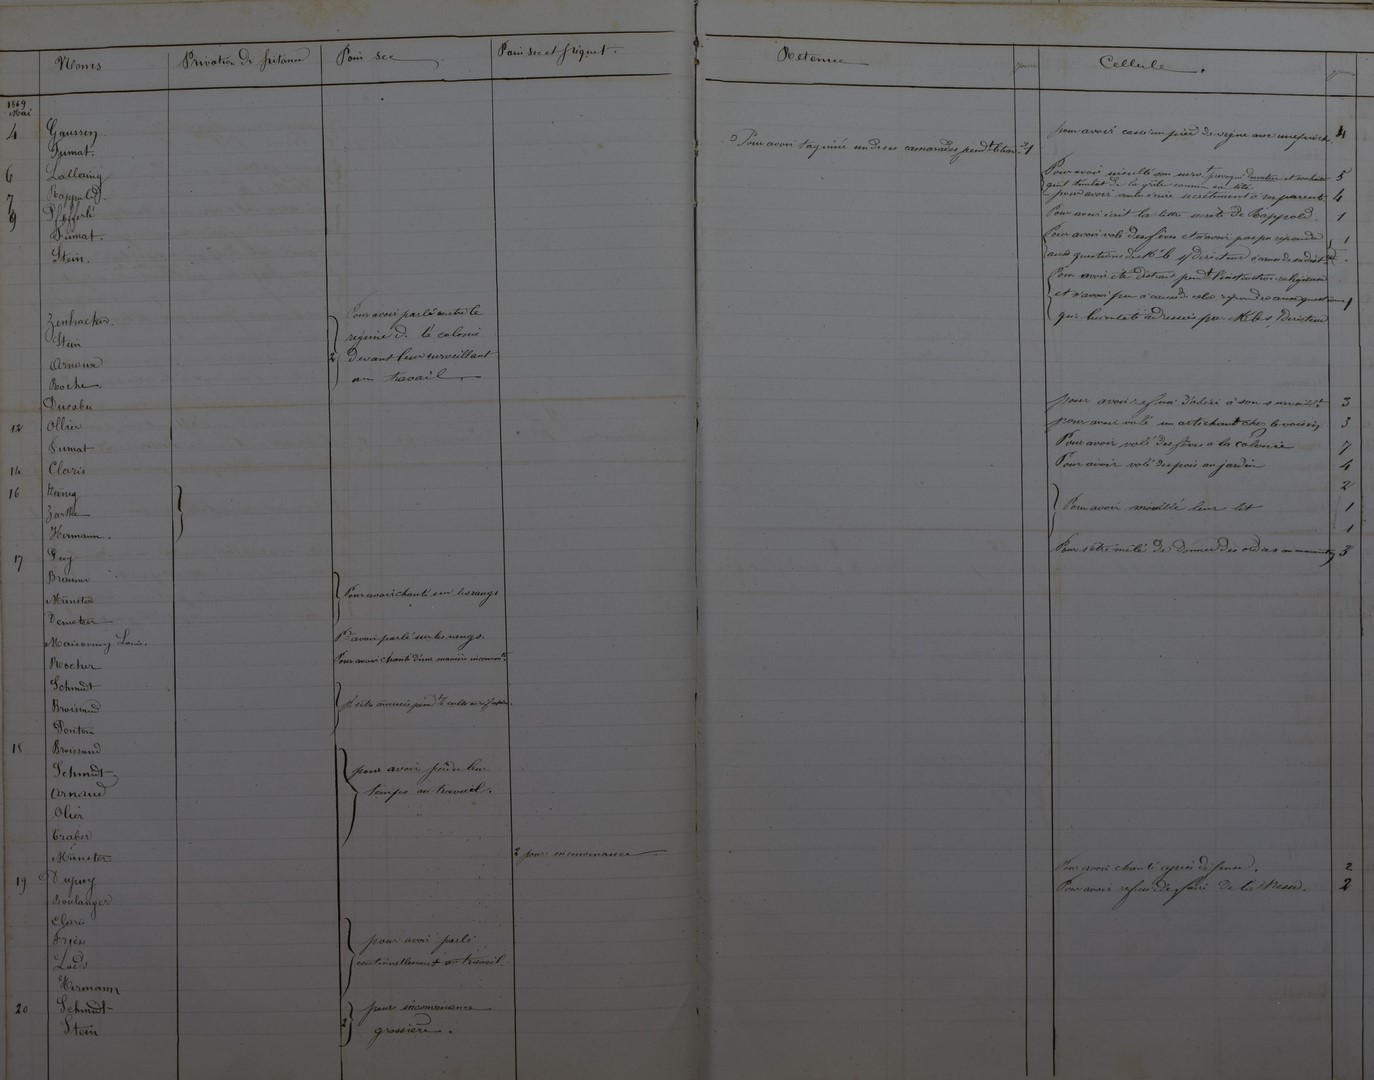 Noms Privation de pitance Pain sec Pain sec et piquet. Retenue jours Cellule. jours
1869
Mai
4 Gaussen pour avoir cassé un pied de vigne avec une pioche. 4
Fumat. Pour avoir taquiné un de ses camarades pendt le travail 1
6 Lallaing Pour avoir insulté son survt 5
7 Rappold. pour avoir secrètement à ses parents 4
9 Pfefferlé Pour avoir écrit la lettre secrète de Rappold. 1
Fumat. Pour avoir volé des fèves et n'avoir pas pu répondre 1
aux questions de Mr le s/directeur
Stein. Pour avoir été distrait pendt l'instruction religieuse
et n'avoir pu à cause de cela répondre aux questions 1
qui lui ont été adressées par Mr le s/directeur
Zenhacker. Pour avoir parlé contre le
Stein régime de la colonie
Arnaud 2 devant leur surveillant
Roche. au travail
Ducobu pour avoir refusé d'obéir à son surveillt 3
12 Ollier pour avoir volé un artichaut chez le voisin 3
Fumat Pour avoir volé des fèves à la colonie 7
14 Claris Pour avoir volé des pois au jardin 4
16 Hœnig 2
Zarthe Pour avoir mouillé leur lit 1
Hermann. 1
17 Guy Pour s'être mêlé de donner des ordres 3
Brauner
Münster Pour avoir chanté sur les rangs
Demeter
Maisonny Louis. Pr avoir parlé sur les rangs.
Rocher Pour avoir chanté d'une manière inconvte
Schmidt
Broissand pr s'être amusés pendt le culte
Poiton
18 Broissand
Schmidt pour avoir perdu leur
Arnaud temps au travail.
Olier
Traber
Münster 2 pour inconvenance
19 Dupuy Pour avoir chanté après défense. 2
Boulanger Pour avoir refusé de faire de la tresse. 2
Claris
Fries pour avoir parlé
Lods continuellement au travail.
Hermann
20 Schmidt pour inconvenance
Stein 2 grossière.